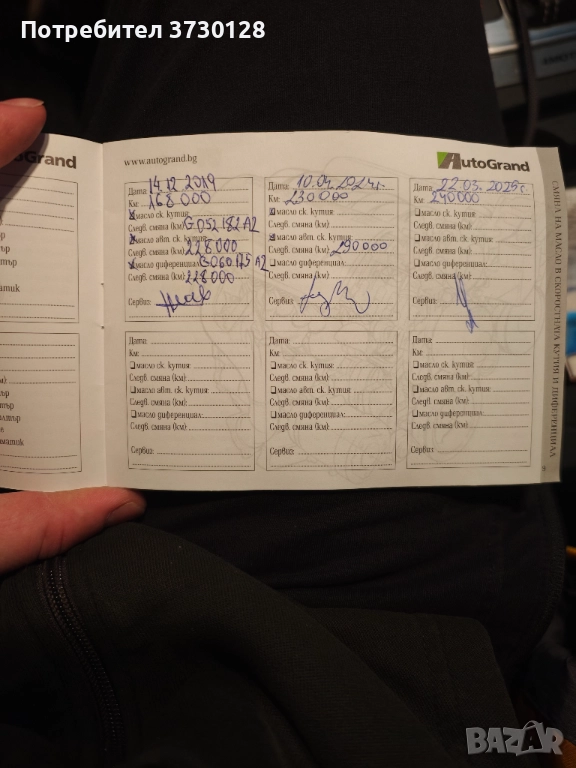 Потребител 3730128
oGrand
www.autogrand.bg
AutoGrand
СМЯНА НА МАСЛО В СКОРОСТНАТА КУТИЯ И ДИФЕРЕНЦИАЛ
Дата: 14.12.2019
Км: 168000
масло ск. кутия:
Следв. смяна (км): G052182A2
масло авт. ск. кутия:
Следв. смяна (км): 228000
масло диференциал: G060175A2
Следв. смяна (км): 228000
Сервиз:
Дата: 10.04.2024г.
Км: 230000
масло ск. кутия:
Следв. смяна (км):
масло авт. ск. кутия:
Следв. смяна (км): 290000
масло диференциал:
Следв. смяна (км):
Сервиз:
Дата: 22.03.2025г.
Км: 240000
масло ск. кутия:
Следв. смяна (км):
масло авт. ск. кутия:
Следв. смяна (км):
масло диференциал:
Следв. смяна (км):
Сервиз:
Дата:
Км:
масло ск. кутия:
Следв. смяна (км):
масло авт. ск. кутия:
Следв. смяна (км):
масло диференциал:
Следв. смяна (км):
Сервиз:
Дата:
Км:
масло ск. кутия:
Следв. смяна (км):
масло авт. ск. кутия:
Следв. смяна (км):
масло диференциал:
Следв. смяна (км):
Сервиз:
Дата:
Км:
масло ск. кутия:
Следв. смяна (км):
масло авт. ск. кутия:
Следв. смяна (км):
масло диференциал:
Следв. смяна (км):
Сервиз:
BAZAR